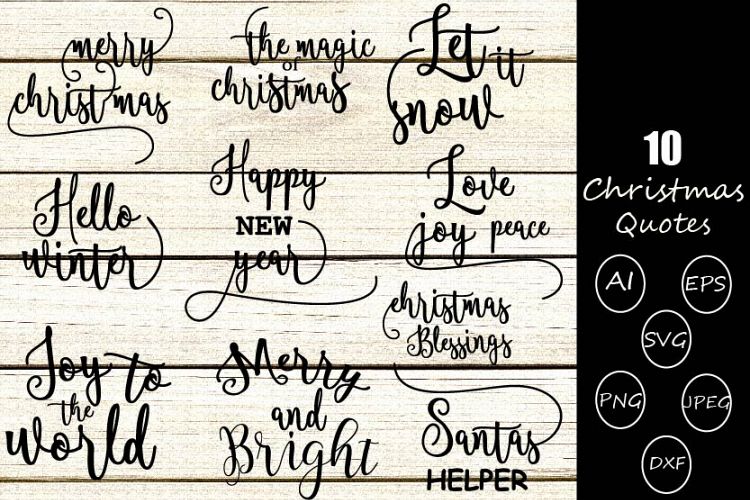 merry
christmas
the magic
of
christmas
Let it
snow
Hello
winter
Happy
NEW
year
Love
joy peace
christmas
Blessings
Joy to
the
world
Merry
and
Bright
Santas
HELPER
10
Christmas
Quotes
AI
EPS
SVG
PNG
JPEG
DXF